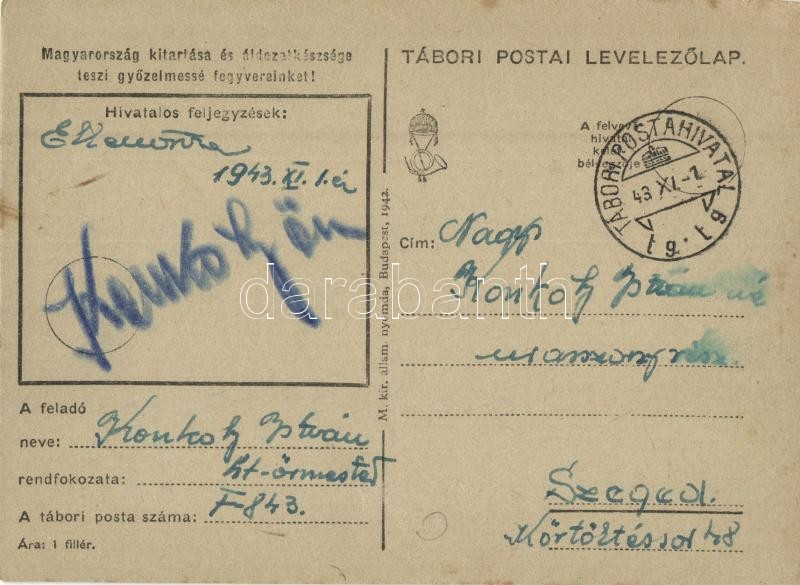 Magyarország kitartása és áldozatkészsége
teszi győzelmessé fegyvereinket!
Hivatalos feljegyzések:
1943. XI. 1.én
Konkoly őm
A feladó
neve: Konkoly István
rendfokozata: ht-örmester
A tábori posta száma: F-843.
Ára: 1 fillér.
M. kir. állam. nyomda, Budapest, 1942.
TÁBORI POSTAI LEVELEZŐLAP.
A felvevő
hivatal
kele
bélyegzője
TÁBORI POSTAHIVATAL
43 XI.-1.
Cím: Nagys
Konkoly Istvánné
úrasszony
Szeged.
Körtöltéssor 48
darabanth